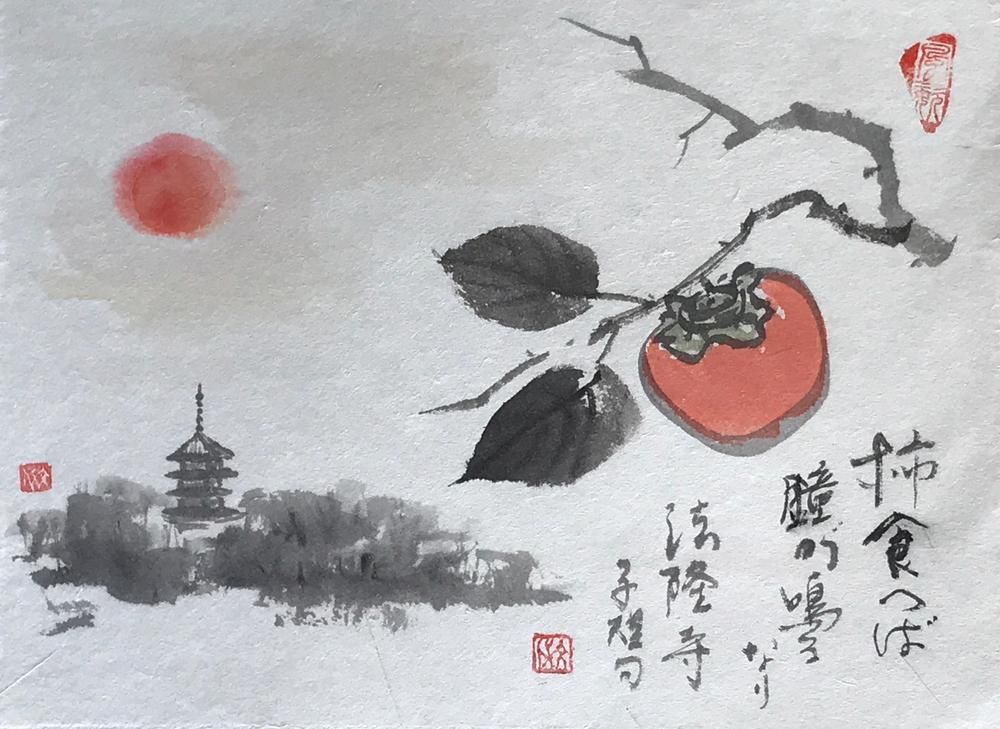 柿食へば
鐘が鳴る
なり
法隆寺
子規句